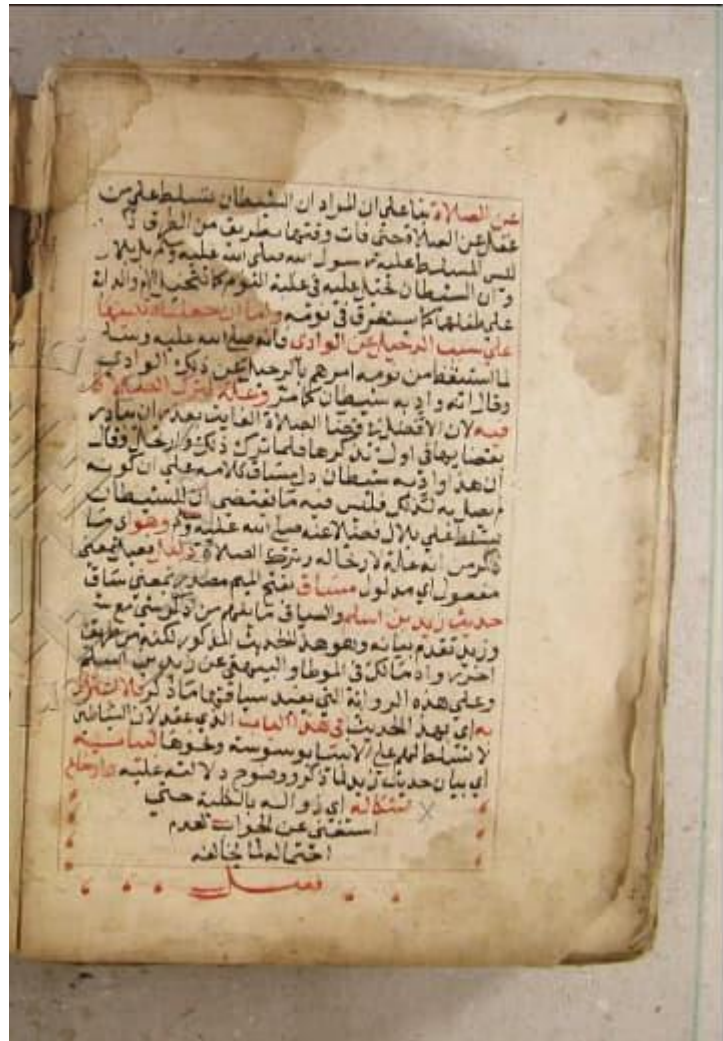 عن الصلاة بناعلى ان المراد ان الشيطان يتسلط على من
غفل عن الصلاة حتى فات وقتها بطريق من الطرق
ليس المسلط عليه رسول الله صلى الله عليه وم بل بلال
وان الشيطان عليه في غلبة النوم
على طفلها كما يستغرق في نومه واما ان جعلناه تنبيها
على سبب الرحيل عن الوادى فانه صلى الله عليه وسلم
لما استيقظ من نومه امرهم بالرحيل عن ذلك الوادي
وقال انه واد به شيطان كما مر وعلة لترك الصلاة
فيه لان الافضل في قضا الصلاة الفايتة بعذر ان يبادر
بقضايها في اول تذكرها فلما ترك ذلك وارتحل وقال
ان هذا واد به شيطان دل مساق كلامه على ان كونه
لم يصل به لذلك فليس فيه ما يقتضى ان الشيطان
تسلط على بلال فضلا عنه صلى الله عليه وم وهو اى ما
ذكر من انه علة لارتحاله وترك الصلاة دليل فعيل بمعنى
مفعول اي مدلول مساق بفتح الميم مصدر بمعنى سياق
حديث زيد بن اسلم والسياق ما يفهم من
وزيد تقدم بيانه وهو هذا الحديث المذكور لكنه من طريق
اخرى رواه مالك في الموطا والبيهقي عن زيد بن اسلم
وعلى هذه الرواية التي يفيد سياقها ما ذكر فلا اعتراض
به اي بهذا الحديث في هذا الباب الذي عقد لان الشياطين
لا تتسلط على الانبيا بوسوسة ونحوها لبيانه
اي بيان حديث زيد لما ذكر ووضوح دلالته عليه وارتفاع
اشكاله اي زواله بالكلية حتى
استغنى عن الجواب لعدم
احتماله لما يخالفه
فصل